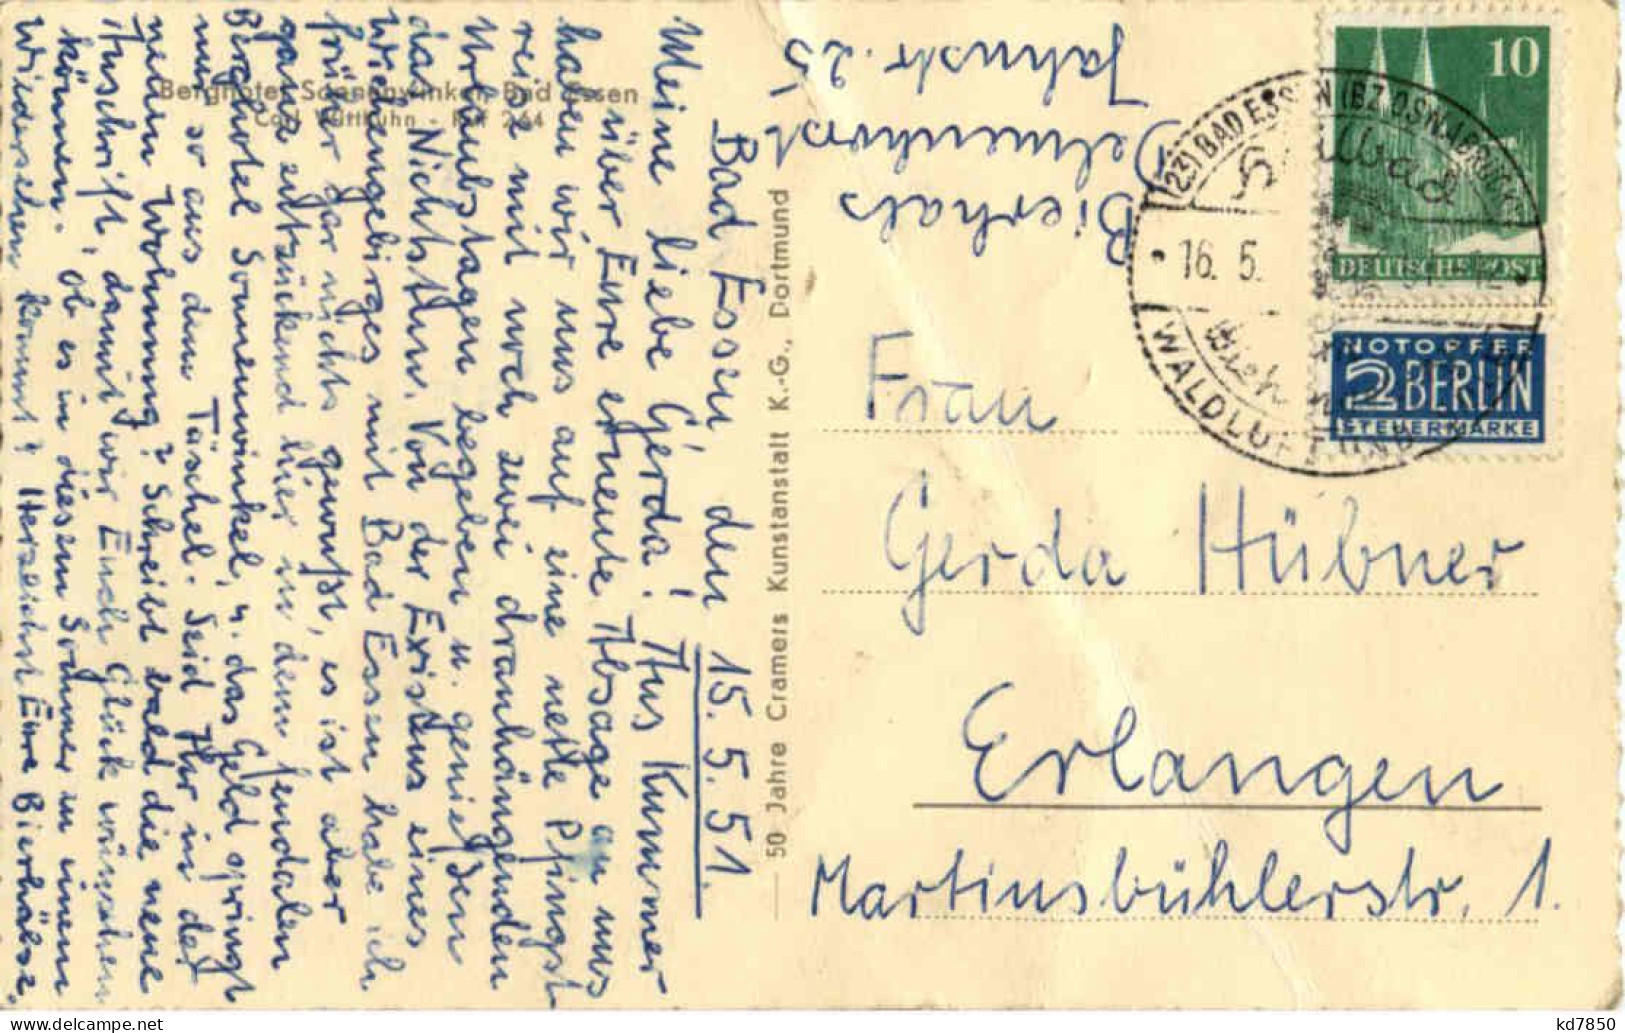 Berghotel Sonnenwinkel Bad Essen
Carl Ruf 264
Bad Essen, den 15. 5. 51.
Meine liebe Gerda! Aus Kummer
über Eure erneute Absage an uns
haben wir uns auf eine nette Pfingst
reise mit noch zwei dranhängenden
Urlaubstagen begeben u. genießen
das Nichtstun. Von der Existens eines
Wiehengebirges mit Bad Essen habe ich
früher gar nichts gewußt, es ist aber
ganz entzückend hier in dem feudalen
Berghotel Sonnenwinkel, u. das Geld springt
nur so aus dem Täschel. Seid Ihr in der
neuen Wohnung? Schreibt bald die neue
Anschrift, damit wir Euch Glück wünschen
können. Ob es in diesem Sommer zu einem
Wiedersehen kommt? Herzlichst Eure Bierhälse.
50 Jahre Cramers Kunstanstalt K.-G., Dortmund
Bierhals
Delmenhorst
Jahnstr. 25
10
DEUTSCHE POST
NOTOPFER
2 BERLIN
STEUERMARKE
(23) BAD ESSEN (BZ. OSNABRÜCK)
16. 5. 51
WALDLUFT UND
Frau
Gerda Hübner
Erlangen
Martinsbühlerstr. 1.
kd7850